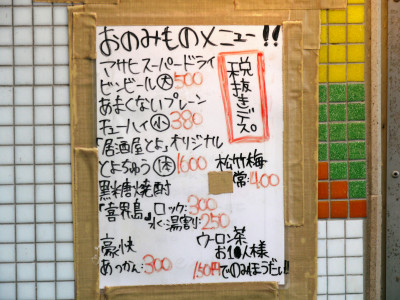 おのみものメニュー!!
アサヒスーパードライ
ビンビール大500
あまくないプレーン
チューハイ小380
税抜きデス。
「居酒屋とよ」オリジナル
とよちゅう 1600
松竹梅
常400
黒糖焼酎
「喜界島」ロック:300
水・湯割:250
豪快
あっかん:300
ウーロン茶
お1人様
150円でのみほうだい!!